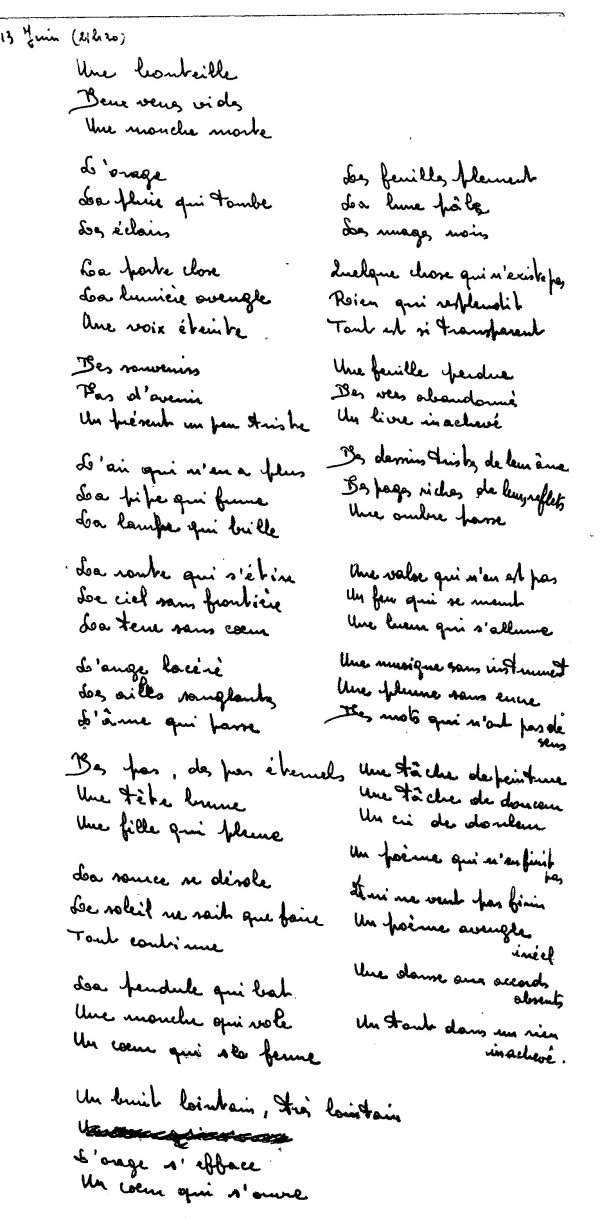 13 Juin (21h20)
Une bouteille
Deux verres vides
Une mouche morte
L'orage
La pluie qui tombe
Les éclairs
La porte close
La lumière aveugle
Une voix éteinte
Des souvenirs
Pas d'avenir
Un présent un peu triste
L'air qui n'en a plus
La pipe qui fume
La lampe qui brille
La route qui s'étire
Le ciel sans frontière
La terre sans cœur
L'ange lacéré
Les ailes sanglantes
L'âme qui passe
Des pas, des pas éternels
Une tête brune
Une fille qui pleure
La source se désole
Le soleil ne sait que faire
Tout continue
La pendule qui bat
Une mouche qui vole
Un cœur qui se ferme
Un bruit lointain, très lointain
L'orage s'efface
Un cœur qui s'ouvre
Les feuilles pleurent
La lune pâle
Les nuages noirs
Quelque chose qui n'existe pas
Rien qui resplendit
Tout est si transparent
Une feuille perdue
Des vers abandonnés
Un livre inachevé
Des dessins tristes de leur âme
Des pages riches de leurs reflets
Une ombre passe
Une valse qui n'en est pas
Un feu qui se meurt
Une lueur qui s'allume
Une musique sans instrument
Une plume sans encre
Des mots qui n'ont pas de
sens
Une tâche de peinture
Une tâche de douceur
Un cri de douleur
Un poème qui n'en finit
pas
Et qui ne veut pas finir
Un poème aveugle
irréel
Une danse aux accords
absents
Un tout dans un rien
inachevé.